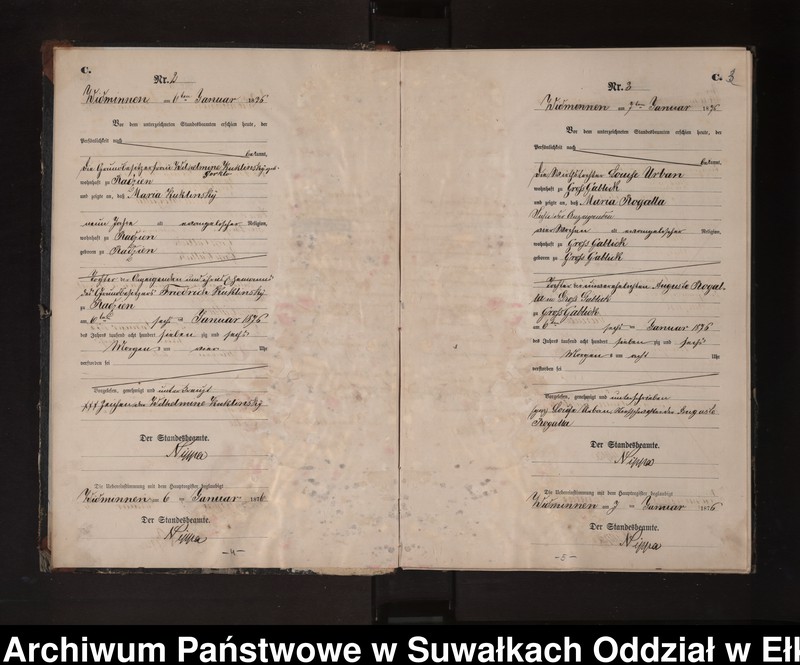 C.
Nr. 2
Widminnen am 6ten Januar 1876
Vor dem unterzeichneten Standesbeamten erschien heute, der
Persönlichkeit nach
bekannt,
die Grundbesitzerfrau Wilhelmine Kuklinsky geb.
wohnhaft zu Radzien
und zeigte an, daß Maria Kuklinsky
neun Jahre alt evangelischer Religion,
wohnhaft zu Radzien
geboren zu Radzien
Tochter der Anzeigenden und ihres Ehemannes
des Grundbesitzers Friedrich Kuklinsky
zu Radzien
am 6ten sechs Januar 1876
des Jahres tausend acht hundert sieben zig und sechs
Morgens um vier Uhr
verstorben sei
Vorgelesen, genehmigt und unterkreuzt
+++ Zeichen der Wilhelmine Kuklinsky
Der Standesbeamte.
Nippa
Die Uebereinstimmung mit dem Hauptregister beglaubigt
Widminnen am 6 Januar 1876
Der Standesbeamte.
Nippa
- 4 -
C. 3
Nr. 3
Widminnen am 7ten Januar 1876
Vor dem unterzeichneten Standesbeamten erschien heute, der
Persönlichkeit nach
bekannt,
die Louise Urban
wohnhaft zu Groß Gablick
und zeigte an, daß Maria Rogalla
vier Wochen alt evangelischer Religion,
wohnhaft zu Groß Gablick
geboren zu Groß Gablick
Tochter der unverehelichten Auguste Rogal-
la in Groß Gablick
zu Groß Gablick
am 6ten sechs Januar 1876
des Jahres tausend acht hundert sieben zig und sechs
Morgens um acht Uhr
verstorben sei
Vorgelesen, genehmigt und unterschrieben
gez. Louise Urban, Auguste
Rogalla
Der Standesbeamte.
Nippa
Die Uebereinstimmung mit dem Hauptregister beglaubigt
Widminnen am 7 Januar 1876
Der Standesbeamte.
Nippa
- 5 -
Archiwum Państwowe w Suwałkach Oddział w Ełk